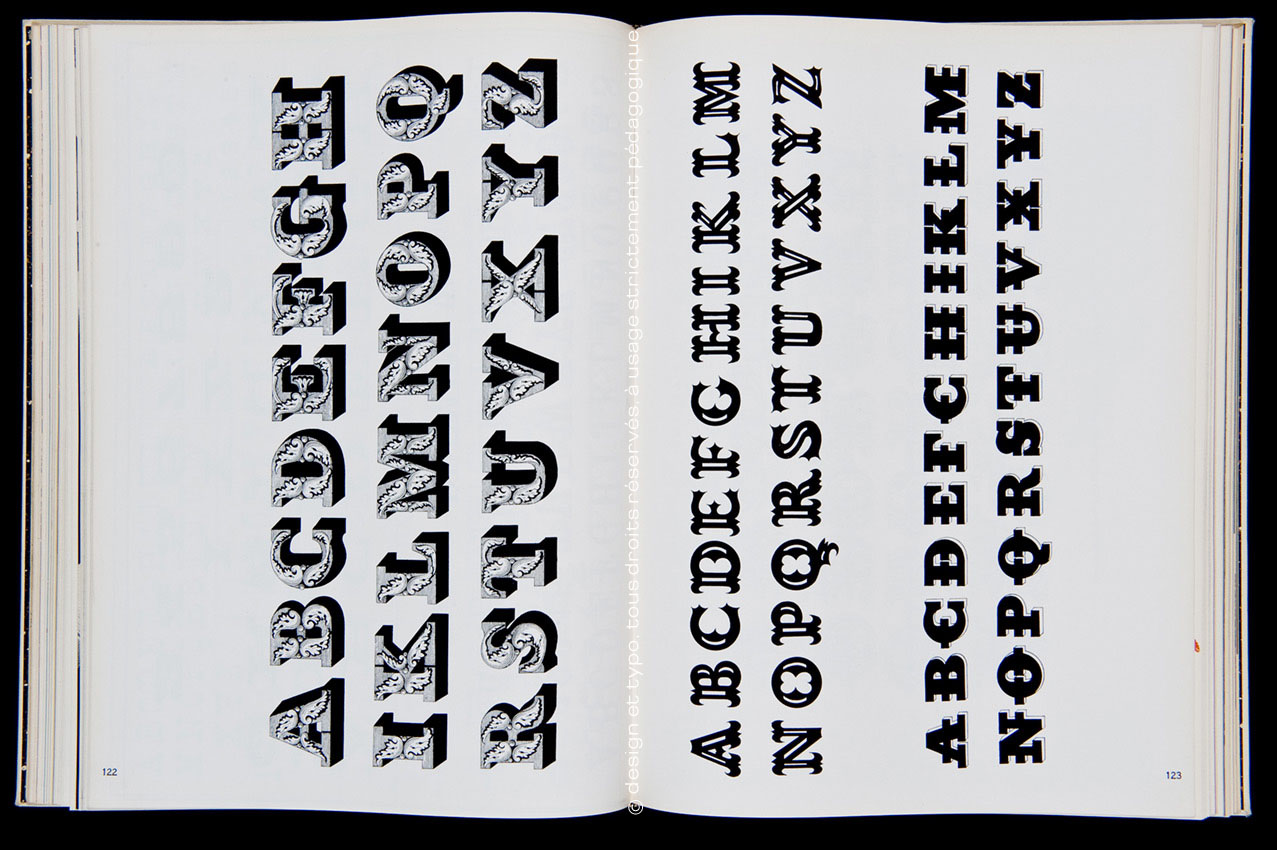 ABCDEFGH
IKLMNOPQ
RSTUVXYZ
122
© design et typo, tous droits réservés, à usage strictement pédagogique
ABCDEFGHIKLM
NOPQRSTUVXYZ
ABCDEFGHIKLM
NOPQRSTUVXYZ
123